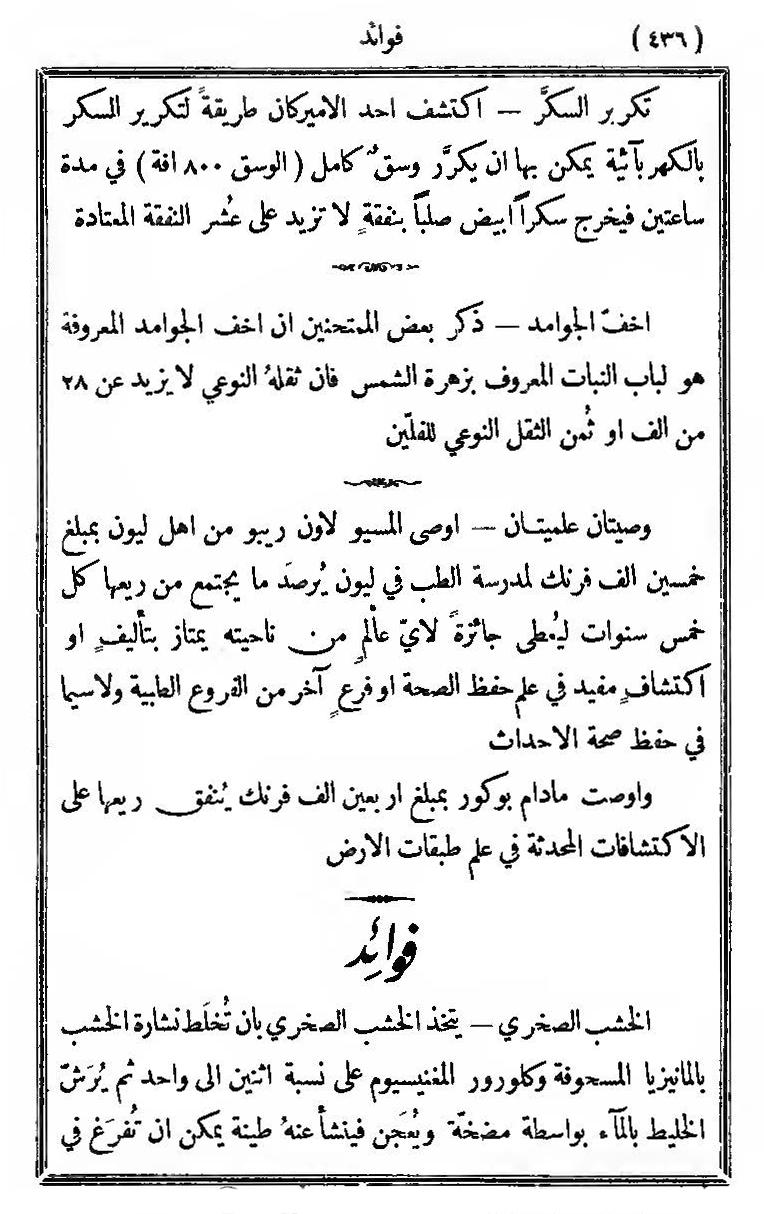 (٤٣٦) فوائد
تكرير السكَّر — اكتشف احد الاميركان طريقةً لتكرير السكر
بالكهربآئية يمكن بها ان يكرَّر وسقٌ كامل (الوسق ٨٠٠ اقة) في مدة
ساعتين فيخرج سكراً ابيض صلباً بنفقةٍ لا تزيد على عُشر النفقة المعتادة
اخفّ الجوامد — ذكر بعض الممتحنين ان اخف الجوامد المعروفة
هو لباب النبات المعروف بزهرة الشمس فان ثقلهُ النوعي لا يزيد عن ٢٨
من الف او ثُمن الثقل النوعي للفلّين
وصيتان علميتان — اوصى المسيو لاون ريبو من اهل ليون بمبلغ
خمسين الف فرنك لمدرسة الطب في ليون يُرصَد ما يجتمع من ريعها كل
خمس سنوات ليُعطى جائزةً لايّ عالمٍ من ناحيته يمتاز بتأليفٍ او
اكتشافٍ مفيد في علم حفظ الصحة او فرعٍ آخر من الفروع الطبية ولاسيما
في حفظ صحة الاحداث
واوصت مادام بوكور بمبلغ اربعين الف فرنك يُنفق ريعها على
الاكتشافات المحدثة في علم طبقات الارض
فوائد
الخشب الصخري — يتخذ الخشب الصخري بان تُخلَط نشارة الخشب
بالمانيزيا المسحوقة وكلورور المغنيسيوم على نسبة اثنين الى واحد ثم يُرَشّ
الخليط بالمآء بواسطة مضخّة ويُعجَن فينشأ عنهُ طينة يمكن ان تُفرَغ في